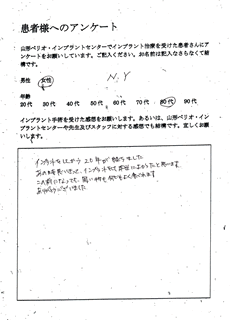 患者様へのアンケート
山形ペリオ・インプラントセンターでインプラント治療を受けた患者さんにア
ンケートをお願いしています。ご記入ください。お名前は記入なさらなくて結
構です。
男性 女性
N.Y
年齢
20代 30代 40代 50代 60代 70代 80代 90代
インプラント手術を受けた感想をお願いします。あるいは、山形ペリオ・イン
プラントセンターや先生及びスタッフに対する感想でも結構です。宜しくお願
いします。
インプラントをしてから 20年が
あの時思い切って、インプラントをして本当によかったと思います
この歳になっても、固い物も何でもよく食べれます
ありがとうございました